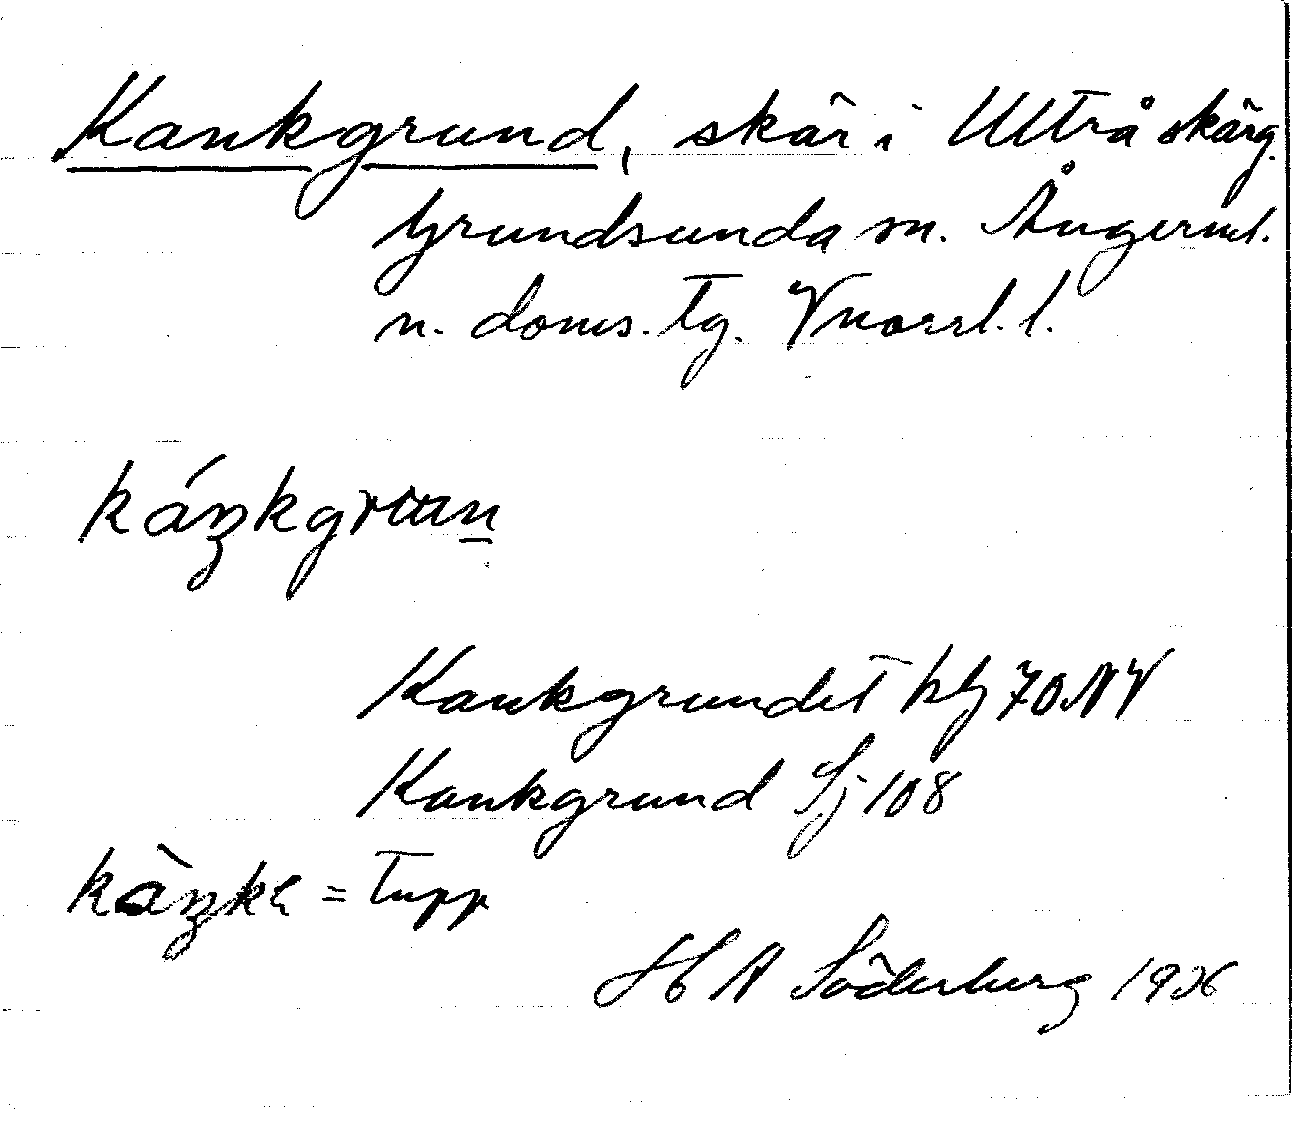 Kankgrund, skär i Ulträ skärg.
Grundsunda sn. Ångerml.
n. doms. tg. Vnorrl. l.
káŋkgruun
Kankgrundet hlj 70 NV
Kankgrund Sj 108
kàŋke = tupp
H A Söderberg 1926